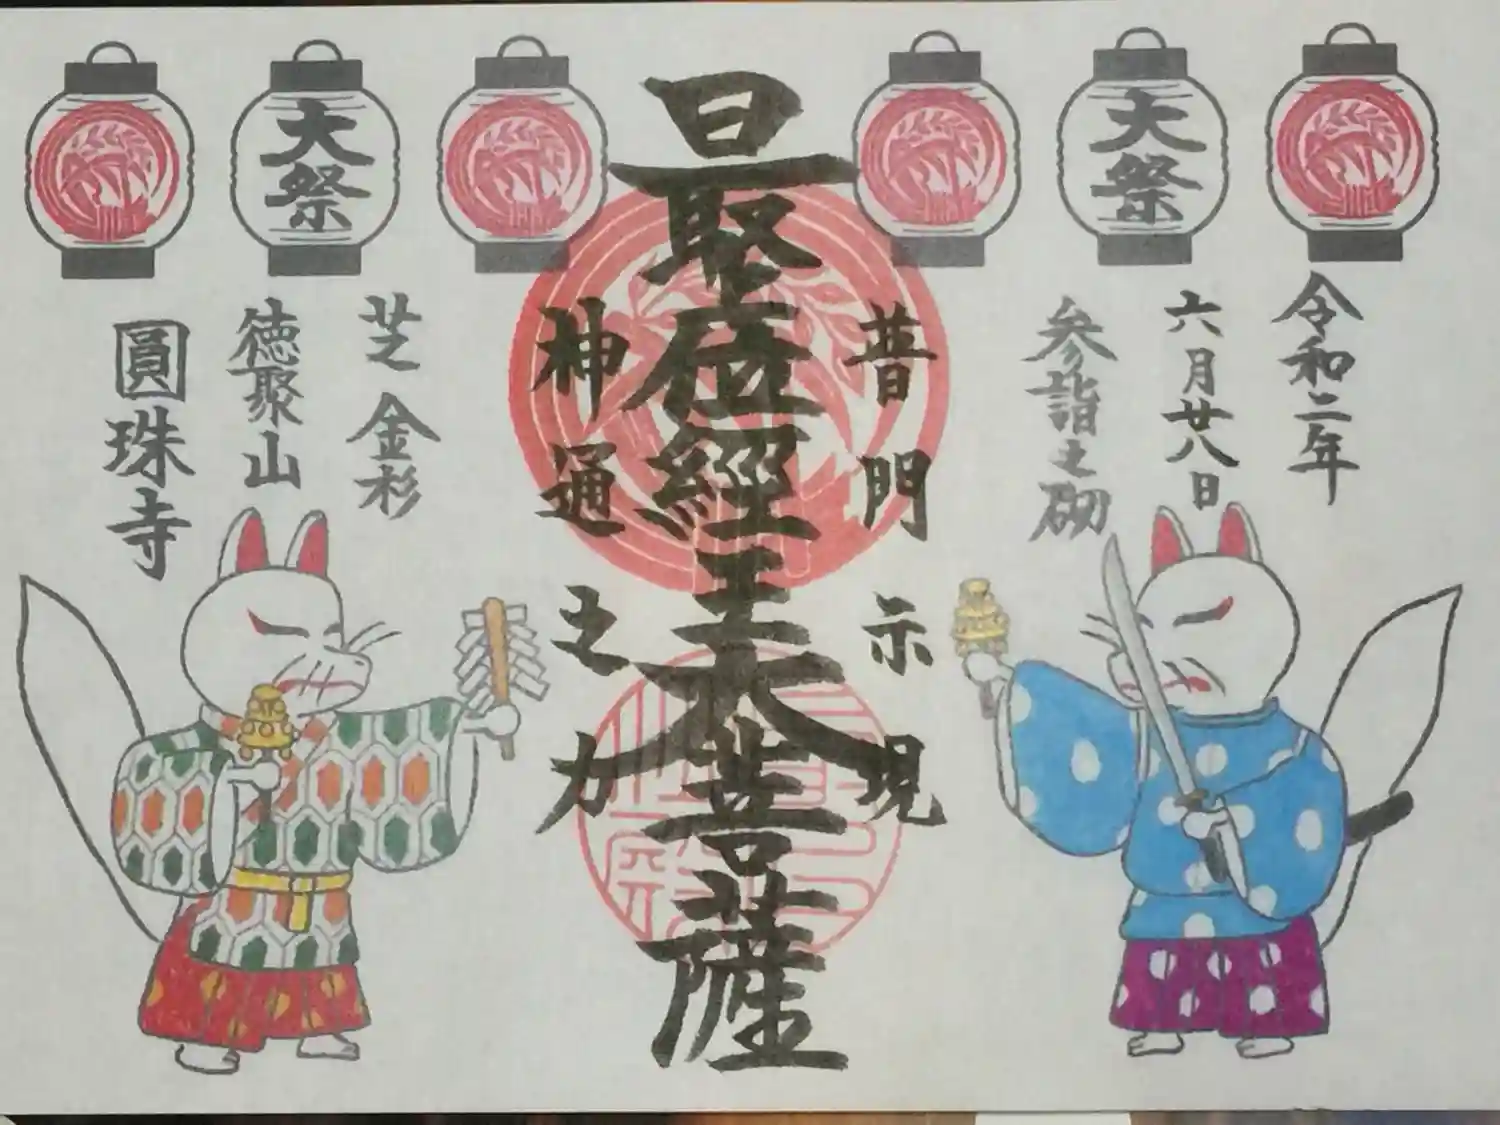 大祭
大祭
令和二年
六月廿八日
参詣之砌
普門示現
最位經王大菩薩
神通之力
芝金杉
徳聚山
圓珠寺